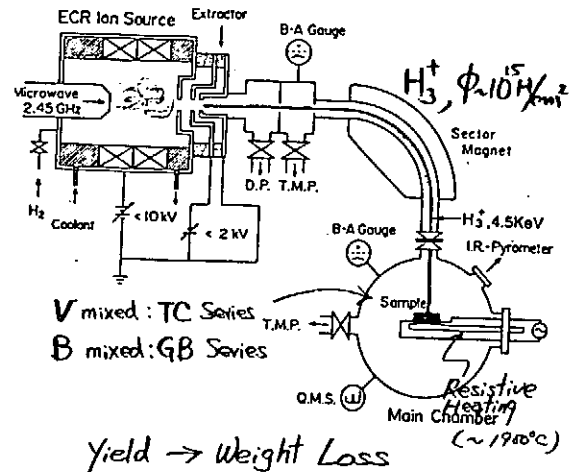 ECR Ion Source
Extractor
B·A Gauge
H₃⁺, ϕ~10¹⁵H/cm²
Microwave
2.45 GHz
Sector
Magnet
D.P.
T.M.P.
H₂
Coolant
<10kV
< 2 kV
H₃⁺, 4.5KeV
B·A Gauge
I.R.-Pyrometer
V mixed: TC Series
Sample
T.M.P.
B mixed: GB Series
Q.M.S.
Resistive
Heating
Main Chamber
(~1900°C)
Yield → Weight Loss